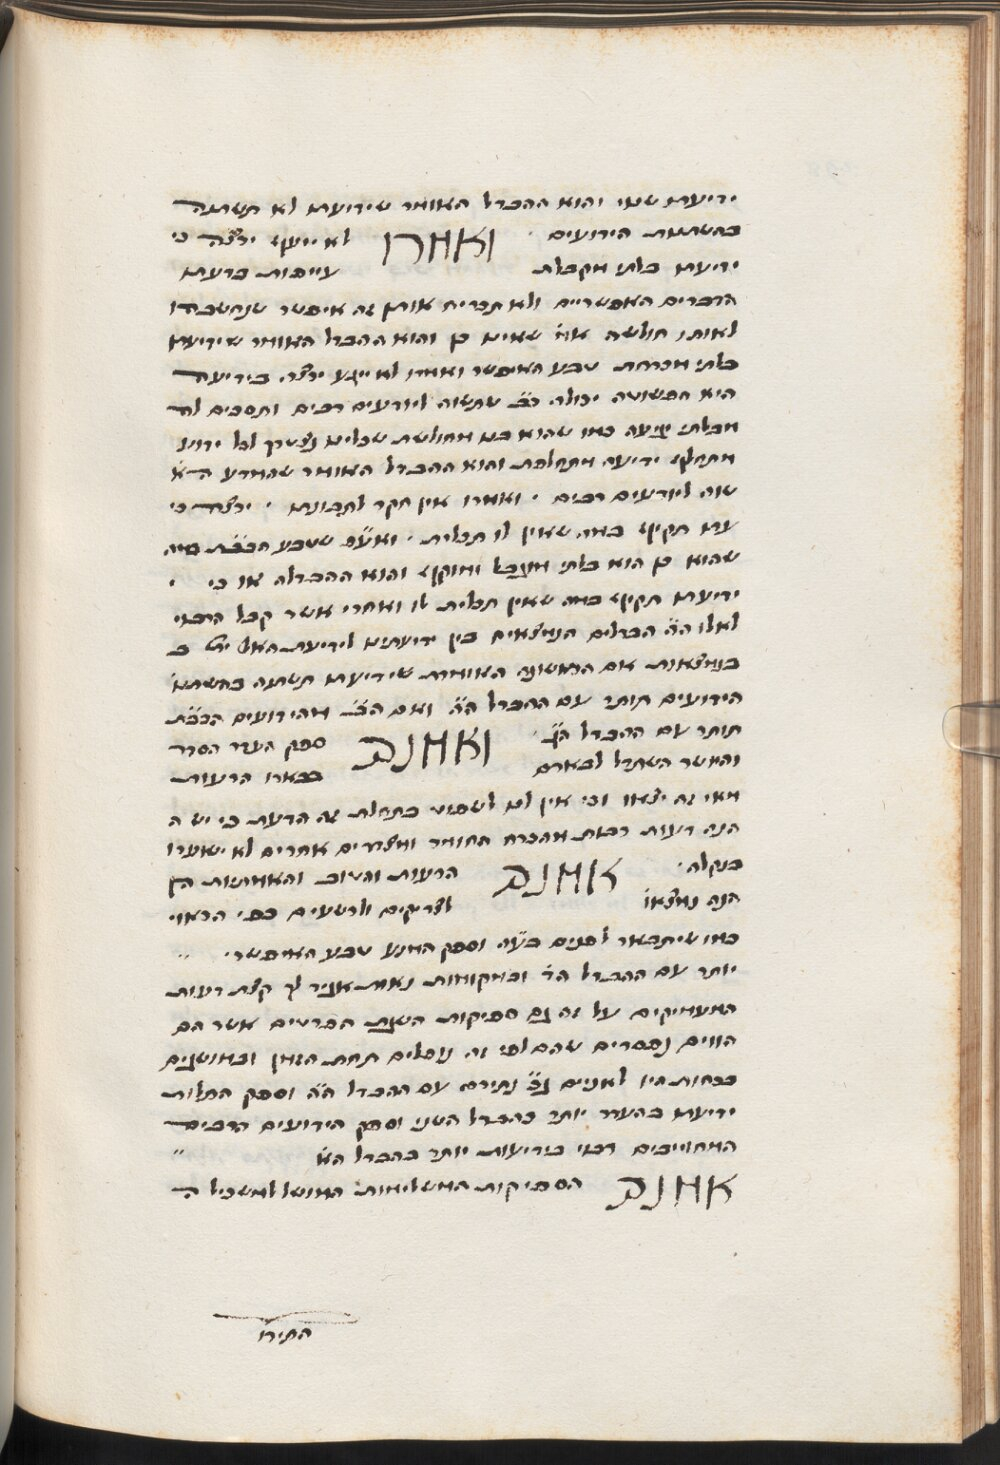 ידיעתו שמי והוא ההבדל האומר שידיעתו לא תשתנה
בהשתנות הידועים ׳ ואמרו לא ייעף ירצה כי
ידיעתו בלתי מקבלת עייפות בדעתו
הדברים האפשריים ולא תכריח אותן זה איפשר שנחשבהו
לאותו חולשה שאינו כן והוא ההבדל האומר שידיעתו
בלתי מכרחת טבע האיפשר ואמרו לא ייגע ירצה בידיעה
היא הפשוטה יכולה שתשוה לידועים רבים ותסכים להם
מבלתי יגיעה כמו שהוא בנו מחולשת שכלינו נצטרך לכל ידוע
מתחלף ידיעה מתחלפת והוא ההבדל האומר שהמדע
שוה לידועים רבים ׳ ואמרו אין חקר לתבונתו ׳ ירצה כי
עתו תקיף במה שאין לו תכלית ׳ שטבע
שהוא כן הוא בלתי מוגבל ומוקף והוא ההבדלה או כי ׳
ידיעתו תקיף במה שאין תכלית לו ואחרי אשר קבל הרבני
לאלו הה׳ הבדלים הנמצאים בין ידיעתינו לידיעת האל ית׳
בנמצאות אם הראשונה האומרת שידיעתו תשתנה בהשתנו׳
הידועים תותר עם ההבדל הה׳ ואם מהידועים
תותר עם ההבדל ׳ ואמנם ספק העדר הסדר
והיושר השתדל לבארם בבארו הדעות
מאי זה יצאו וכי אין לנו לשפוט בתחלת זה הדעת כי יש
הנה רעות רבות מהכרח החומר ומצדדים אחרים לא ישוערו
בנקלה ׳ אמנם הרעות והטוב והאמיתות הן
הנה נמצאו לצדיקים ולרשעים כפי הראוי
כמו שיתבאר לפנים וספק המנע טבע האיפשר ׳
יותר עם ההבדל הד׳ ובמקומות נאות אגיד לך קצת דעות
המעמיקים על זה גם ספיקות השגת הפרטים אשר הם
הווים נפסדים שהם לפי זה נופלים תחת הזמן ובמושגים
בכחות היו לאניים נתירם עם ההבדל הה׳ וספק התלות
ידיעתו בהעדר יותר בהבדל השני וספק הידועים הרבים
המחוייבים רבוי בידיעות יותר בהבדל הא׳
אמנם הספיקות המשלימות המושג למשכיל ה
התירו